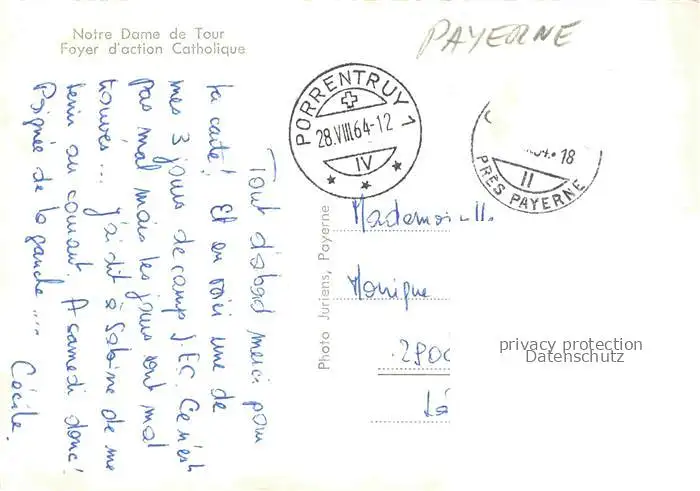 Notre Dame de Tour
Foyer d'action Catholique
PAYERNE
PORRENTRUY 1
28.VIII.64-12
IV
18
II
PRÈS PAYERNE
Tout d'abord merci pour
ta carte! Et en voici une de
mes 3 jours de camp J.E.C. Ce n'est
pas mal mais les jours ont mal
trouvés... J'ai dit à Sabine de me
tenir au courant. A samedi donc!
Poignée de la gauche....
Cécile.
Photo Juriens, Payerne
Mademoi
Monique
290
privacy protection
Datenschutz